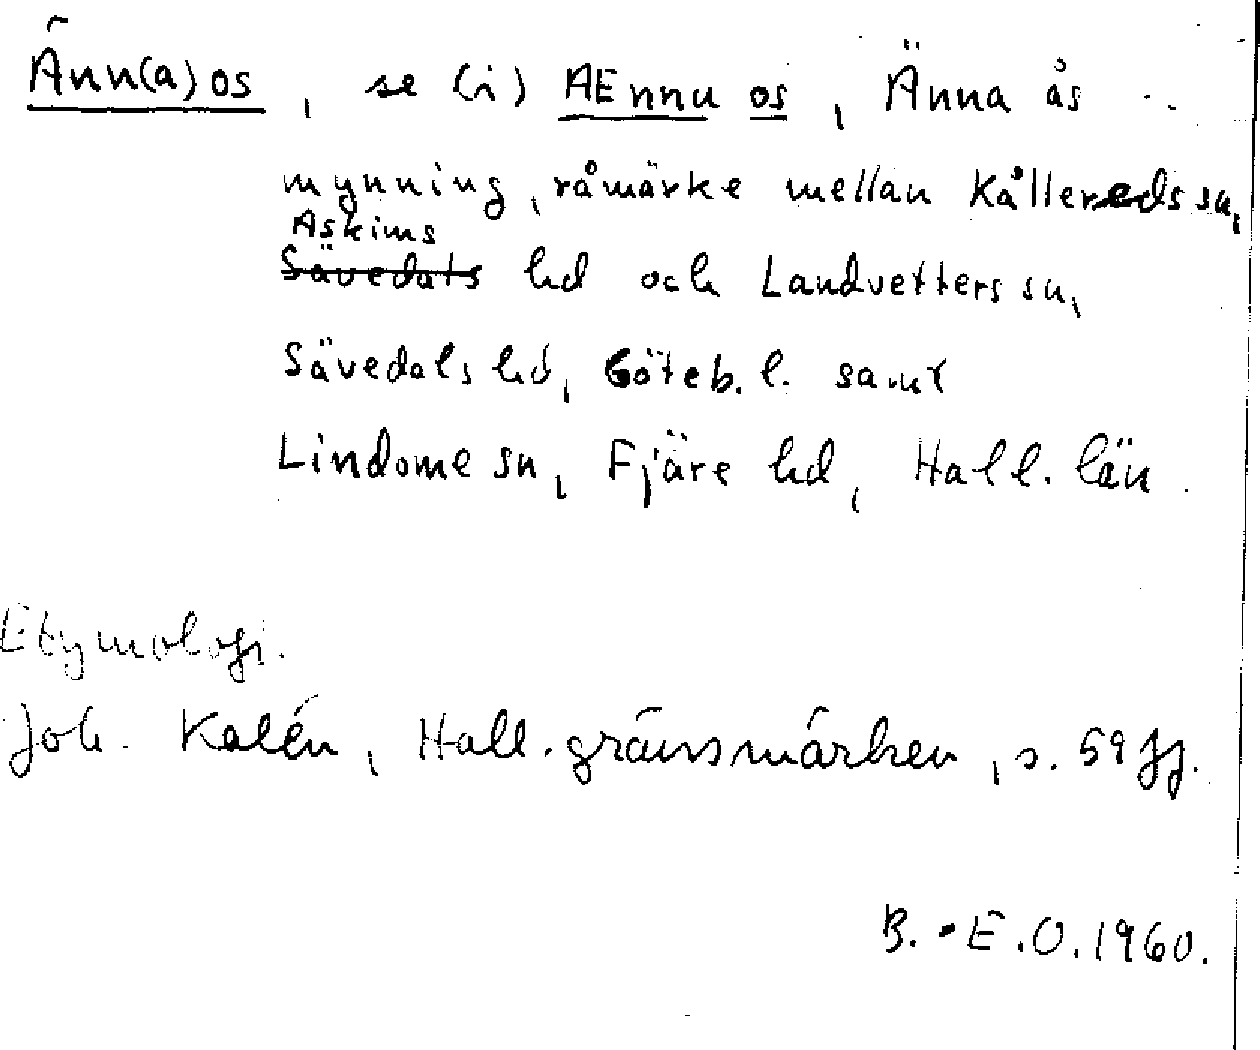 Änn(a)os, se (i) AEnnu os, Änna ås
mynning, råmärke mellan Kållereds sn,
Askims
Sävedals hd och Landvetters sn,
Sävedals hd, Göteb. l. samt
Lindome sn, Fjäre hd, Hall. län.
Etymologi.
Joh. Kalén, Hall. gränsmärken, s. 59 ff.
B.-E.O. 1960.